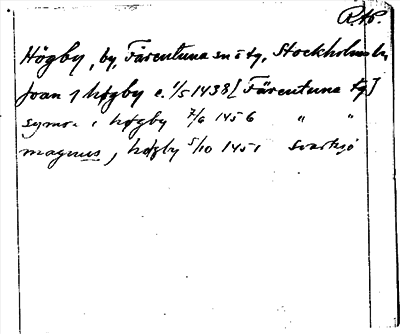 RAP.
Högby, by, Färentuna sn o tg, Stockholms l.
Joan j høgby c. 1/5 1438 [Färentuna tg]
symon i høgby 7/6 1456 " "
magnus j høgby 5/10 1451 svartsjö